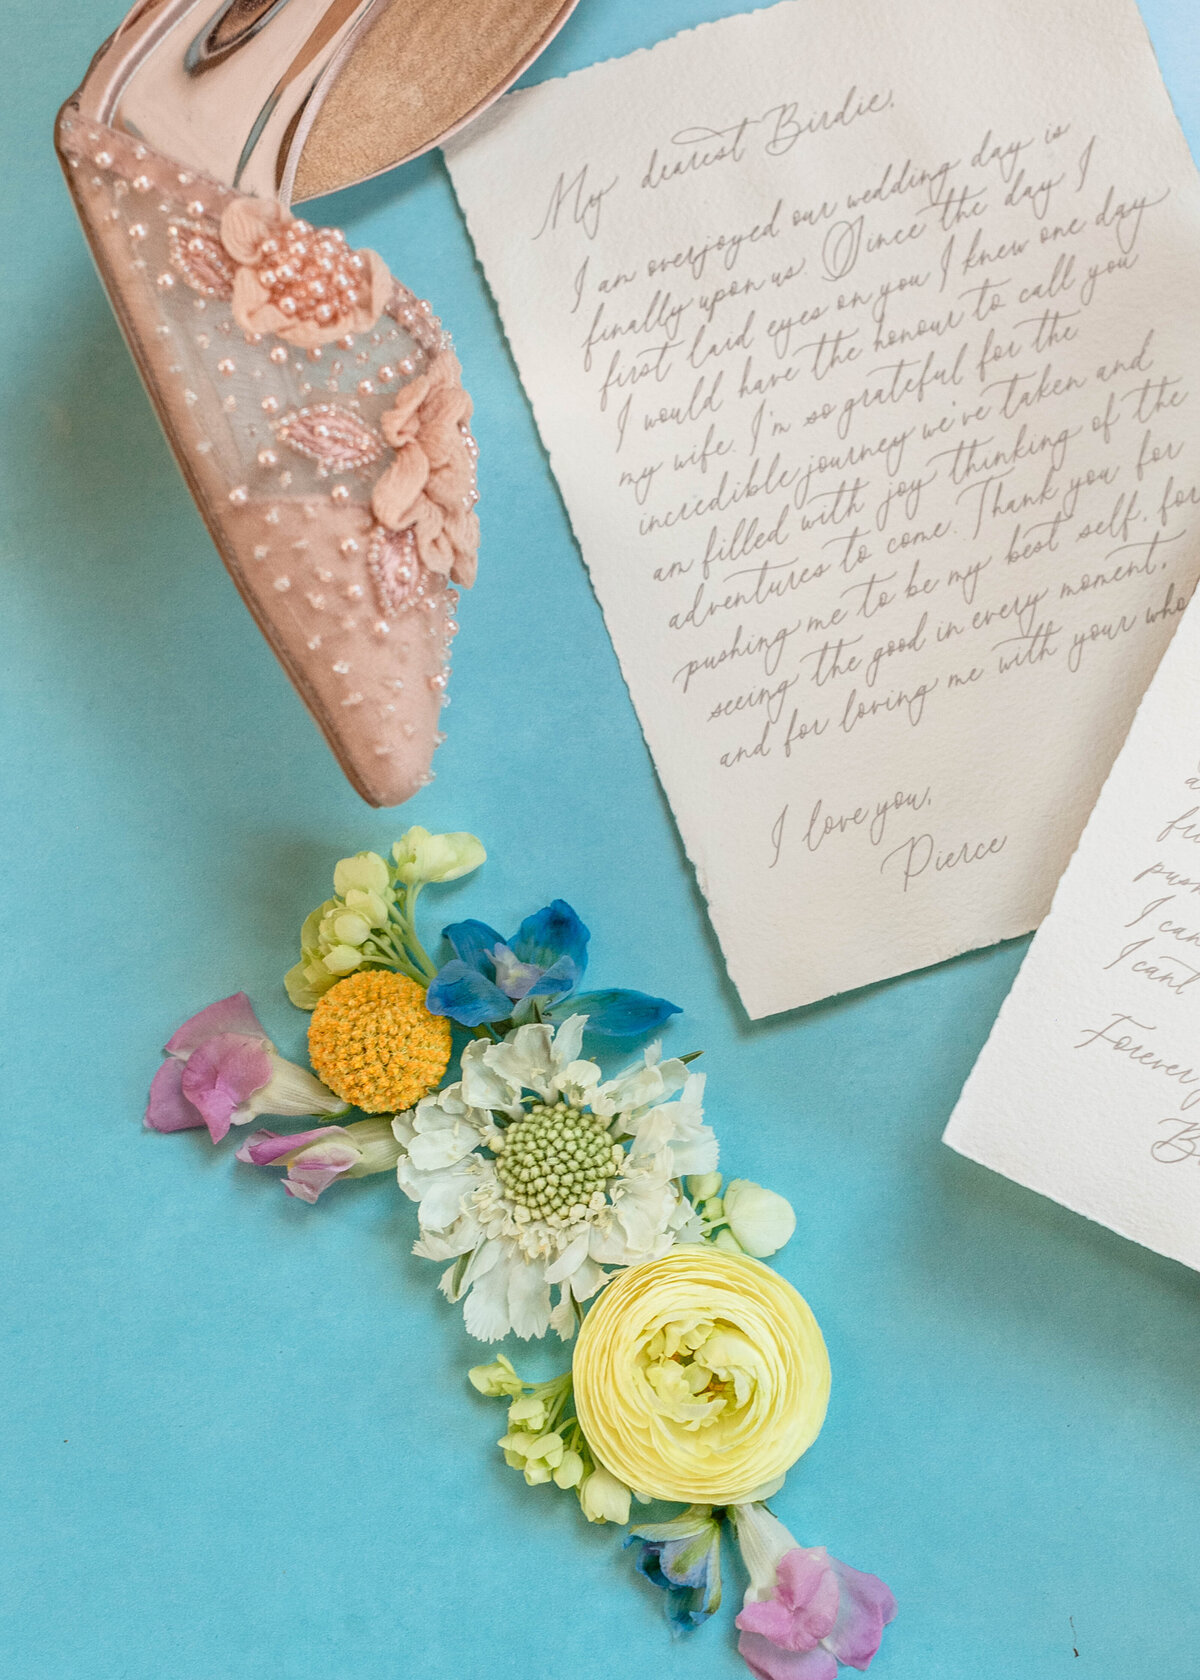 My dearest Birdie,
I am overjoyed our wedding day is
finally upon us. Since the day I
first laid eyes on you I knew one day
I would have the honour to call you
my wife. I'm so grateful for the
incredible journey we've taken and
am filled with joy thinking of the
adventures to come. Thank you for
pushing me to be my best self, for
seeing the good in every moment,
and for loving me with your who
I love you,
Pierce
I can
I cant
Forever
B